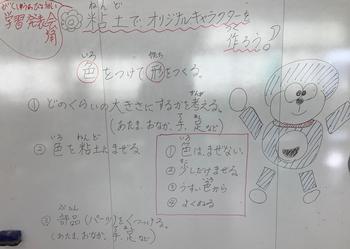 がくしゅうはっぴょうかい
学習発表会
用
ねんど
粘土で、オリジナルキャラクターを
作ろう。
いろ
かたち
色をつけて形をつくる。
① どのくらいの大きさにするかを考える。
(あたま、おなか、手、足 など)
いろ ねんど
② 色を粘土にまぜる
① 色は、まぜない。
② 少しだけまぜる。
③ うすい色から
④ よくぬる
ぶひん
③ 部品(パーツ)をくっつける。
(あたま、おなか、手、足 など)